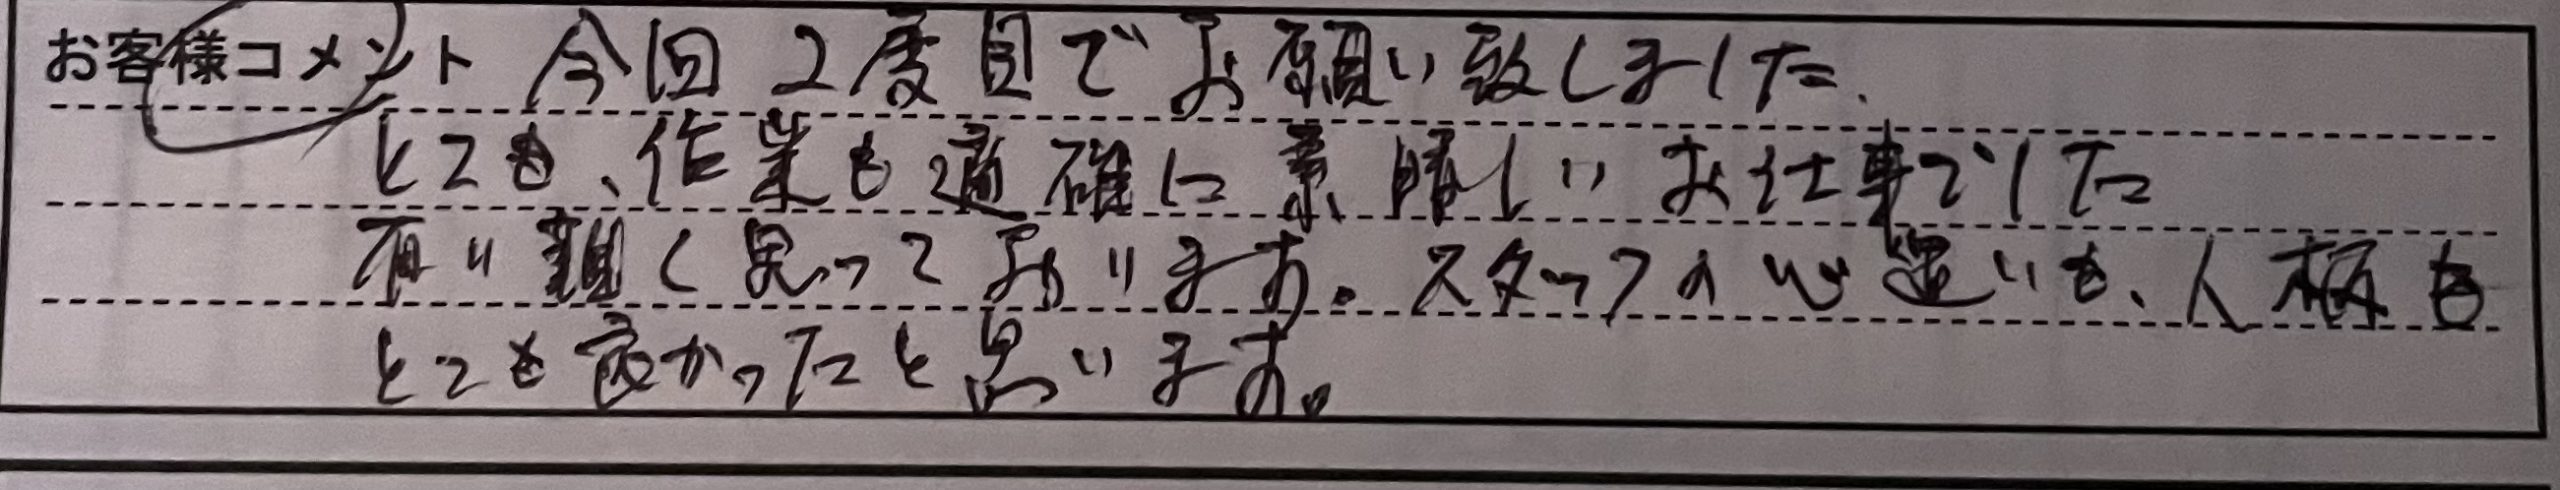 お客様コメント 今回2度目でお願い致しました.
とても、作業も適確に素晴しいお仕事でした
有り難く思っております。スタッフの心遣いも、人柄も
とても良かったと思います。